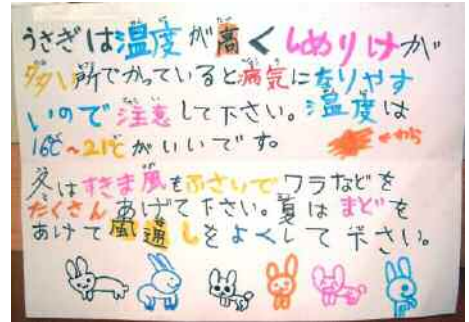 うさぎは温度が高くしめりけが
多い所でかっていると病気になりやす
いので注意して下さい。温度は
16℃~21℃がいいです。
冬はすきま風をふさいでワラなどを
たくさんあげて下さい。夏はまどを
あけて風通しをよくして下さい。